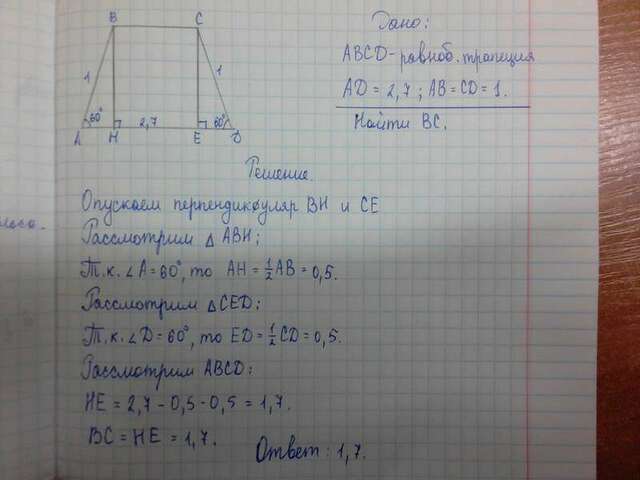 B C
1 1
60° 2,7 60°
A H E D
Дано:
ABCD - равноб. трапеция
AD = 2,7 ; AB = CD = 1.
Найти BC.
Решение.
Опускаем перпендикуляр BH и CE
Рассмотрим △ ABH;
Т.к. ∠A = 60°, то AH = ½AB = 0,5.
Рассмотрим △CED;
Т.к. ∠D = 60°, то ED = ½CD = 0,5.
Рассмотрим ABCD:
HE = 2,7 - 0,5 - 0,5 = 1,7.
BC = HE = 1,7.
Ответ: 1,7.